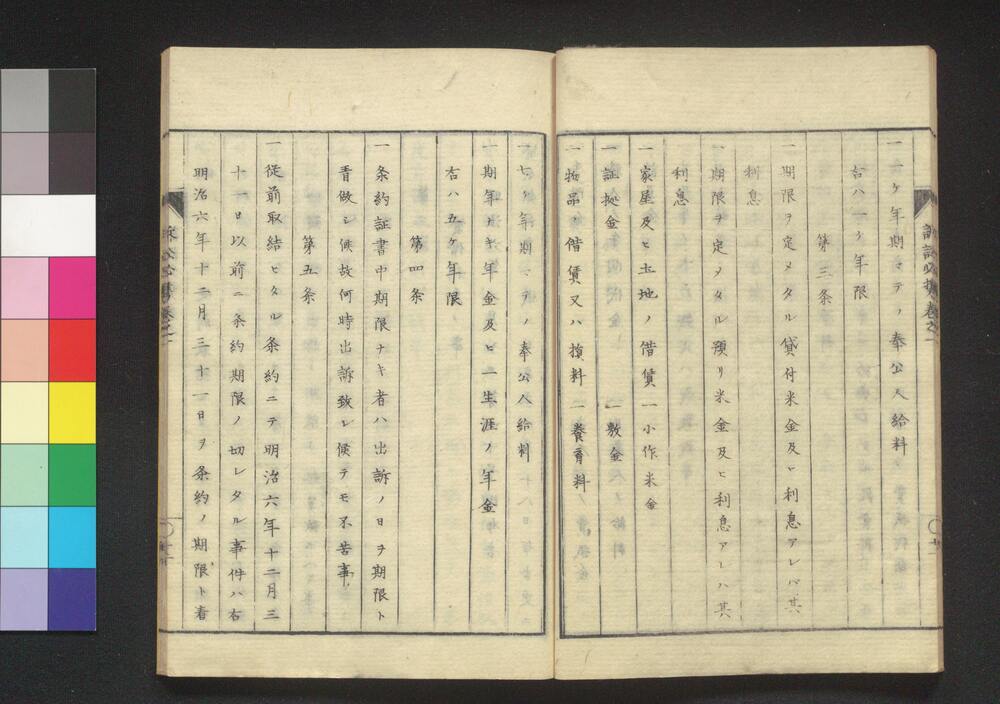 一一ヶ年期マテノ奉公人給料
右ハ一ヶ年限
第三条
一期限ヲ定メタル貸付米金及ヒ利息アレバ其
利息
一期限ヲ定メタル預リ米金及ヒ利息アレハ其
利息
一家屋及ヒ土地ノ借賃 一小作米金
一証拠金 一敷金
一物品ノ借賃又ハ損料 一養育料
一七ヶ年期マテノ奉公人給料
一期年ナキ年金及ヒ一生涯ノ年金
右ハ五ヶ年限
第四条
一条約証書中期限ナキ者ハ出訴ノ日ヲ期限ト
看做シ候故何時出訴致シ候テモ不苦事
第五条
一従前取結ヒタル条約ニテ明治六年十二月三
十一日以前ニ条約期限ノ切レタル事件ハ右
明治六年十二月三十一日ヲ条約ノ期限ト看